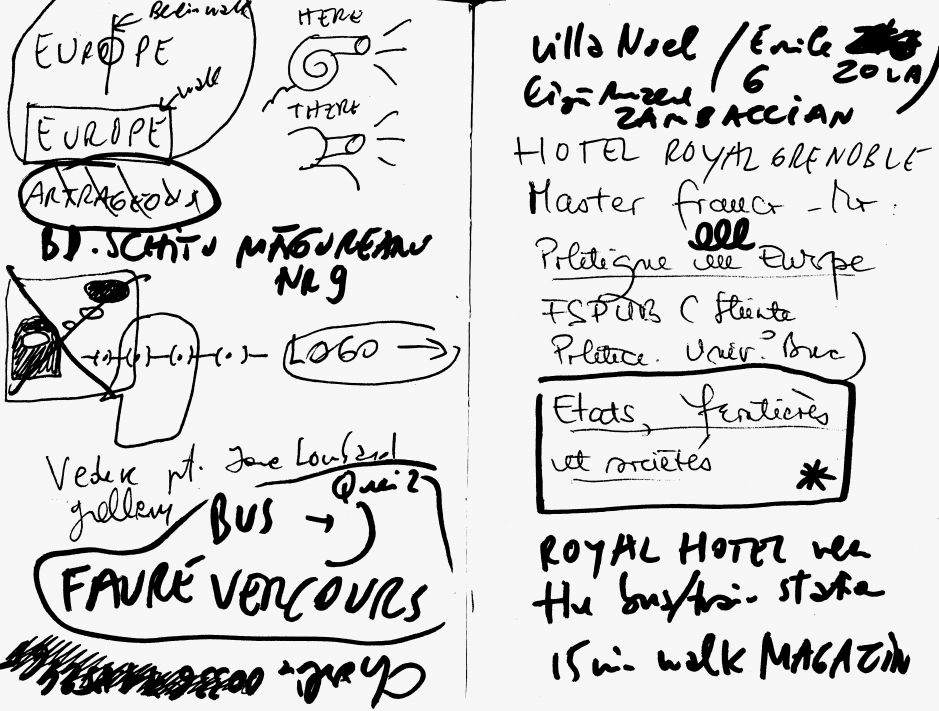 Berlin wall
EUROPE
wall
EUROPE
ARTRAGEOUS
HERE
THERE
BD. SCHITU MĂGUREANU
NR 9
LOGO
pt. Jane Lombard
gallery
Quai 2
BUS
FAURÉ VERCOURS
Villa Noel / Emile
6 ZOLA /
ZAMBACCIAN
HOTEL ROYAL GRENOBLE
Master franco -
Politique en Europe
FSPUB (Stiinte
Politice. Univ. Buc)
Etats, frontières
et sociétés
ROYAL HOTEL near
the bus/train station
15 min walk MAGAZIN